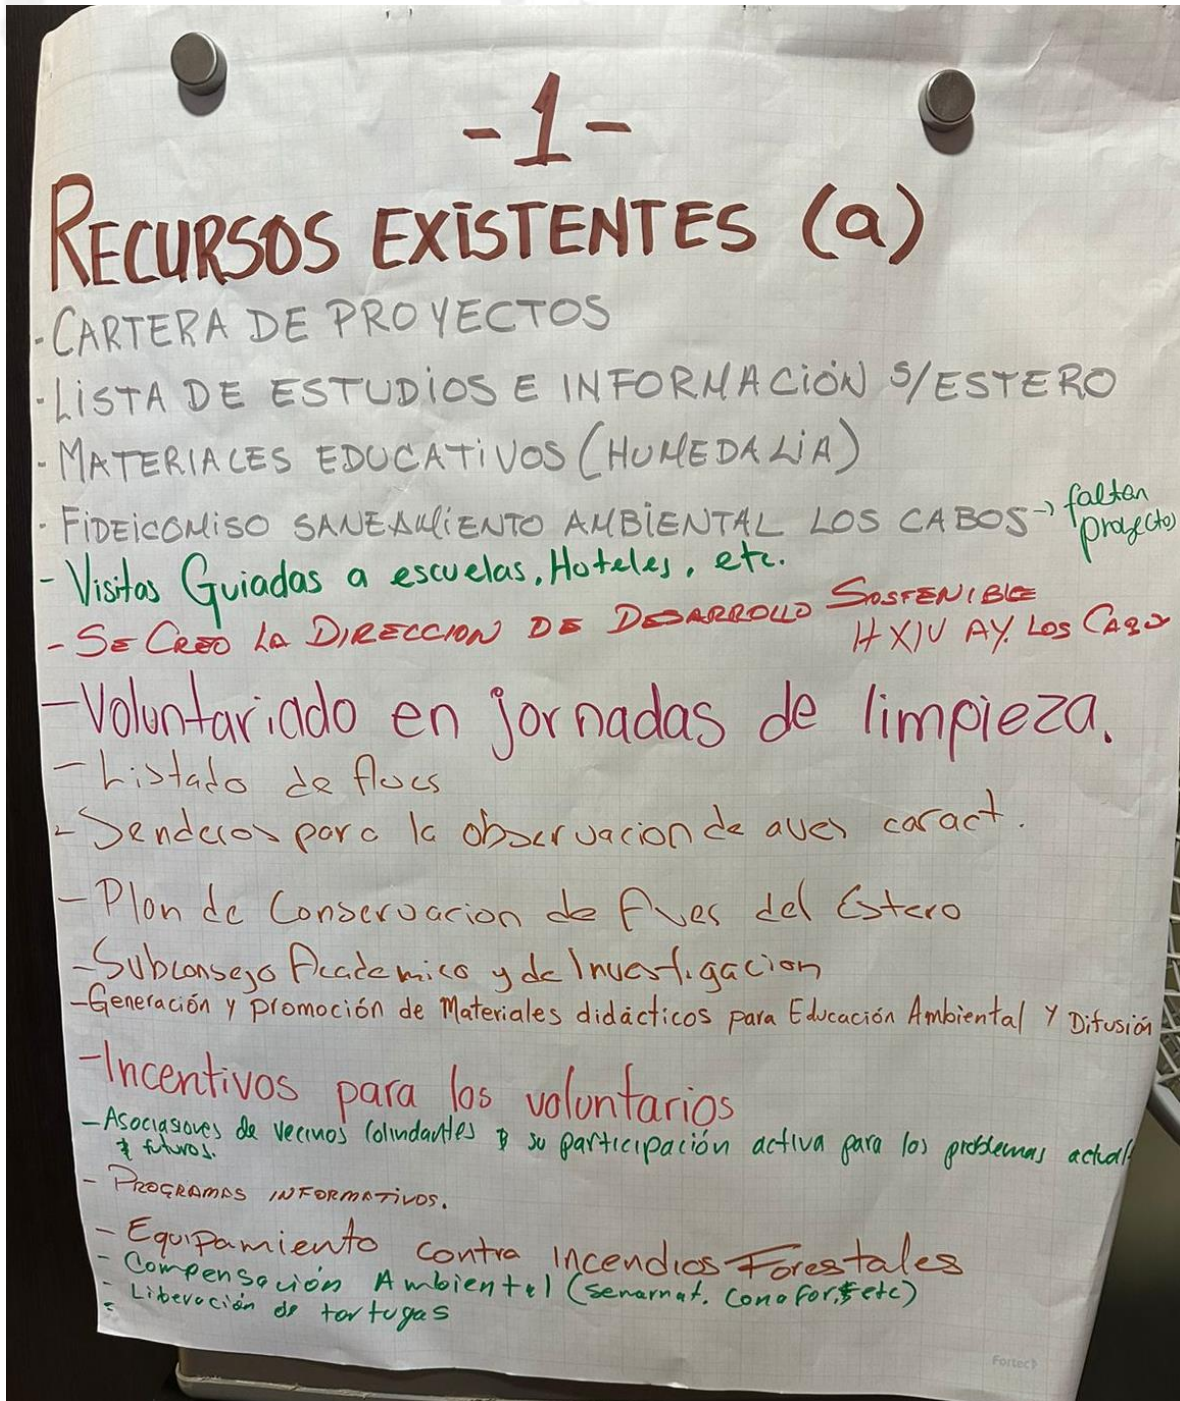 -1-
RECURSOS EXISTENTES (a)
· CARTERA DE PROYECTOS
· LISTA DE ESTUDIOS E INFORMACIÓN S/ESTERO
· MATERIALES EDUCATIVOS (HUMEDALIA)
· FIDEICOMISO SANEAMIENTO AMBIENTAL LOS CABOS → faltan
proyectos
- Visitas Guiadas a escuelas, Hoteles, etc.
- SE CREO LA DIRECCION DE DESARROLLO SOSTENIBLE
H XIV AY. LOS CABOS
- Voluntariado en jornadas de limpieza.
- Listado de Aves
- Senderos para la observacion de aves caract.
- Plan de Conservacion de Aves del Estero
- Subconsejo Academico y de Investigacion
- Generación y promoción de Materiales didácticos para Educación Ambiental y Difusión
- Incentivos para los voluntarios
- Asociasiones de vecinos colindantes y su participación activa para los problemas actual
y futuros.
- PROGRAMAS INFORMATIVOS.
- Equipamiento contra incendios Forestales
- Compensación Ambiental (Semarnat, Conafor, etc)
- Liberación de tortugas
-
Fortec